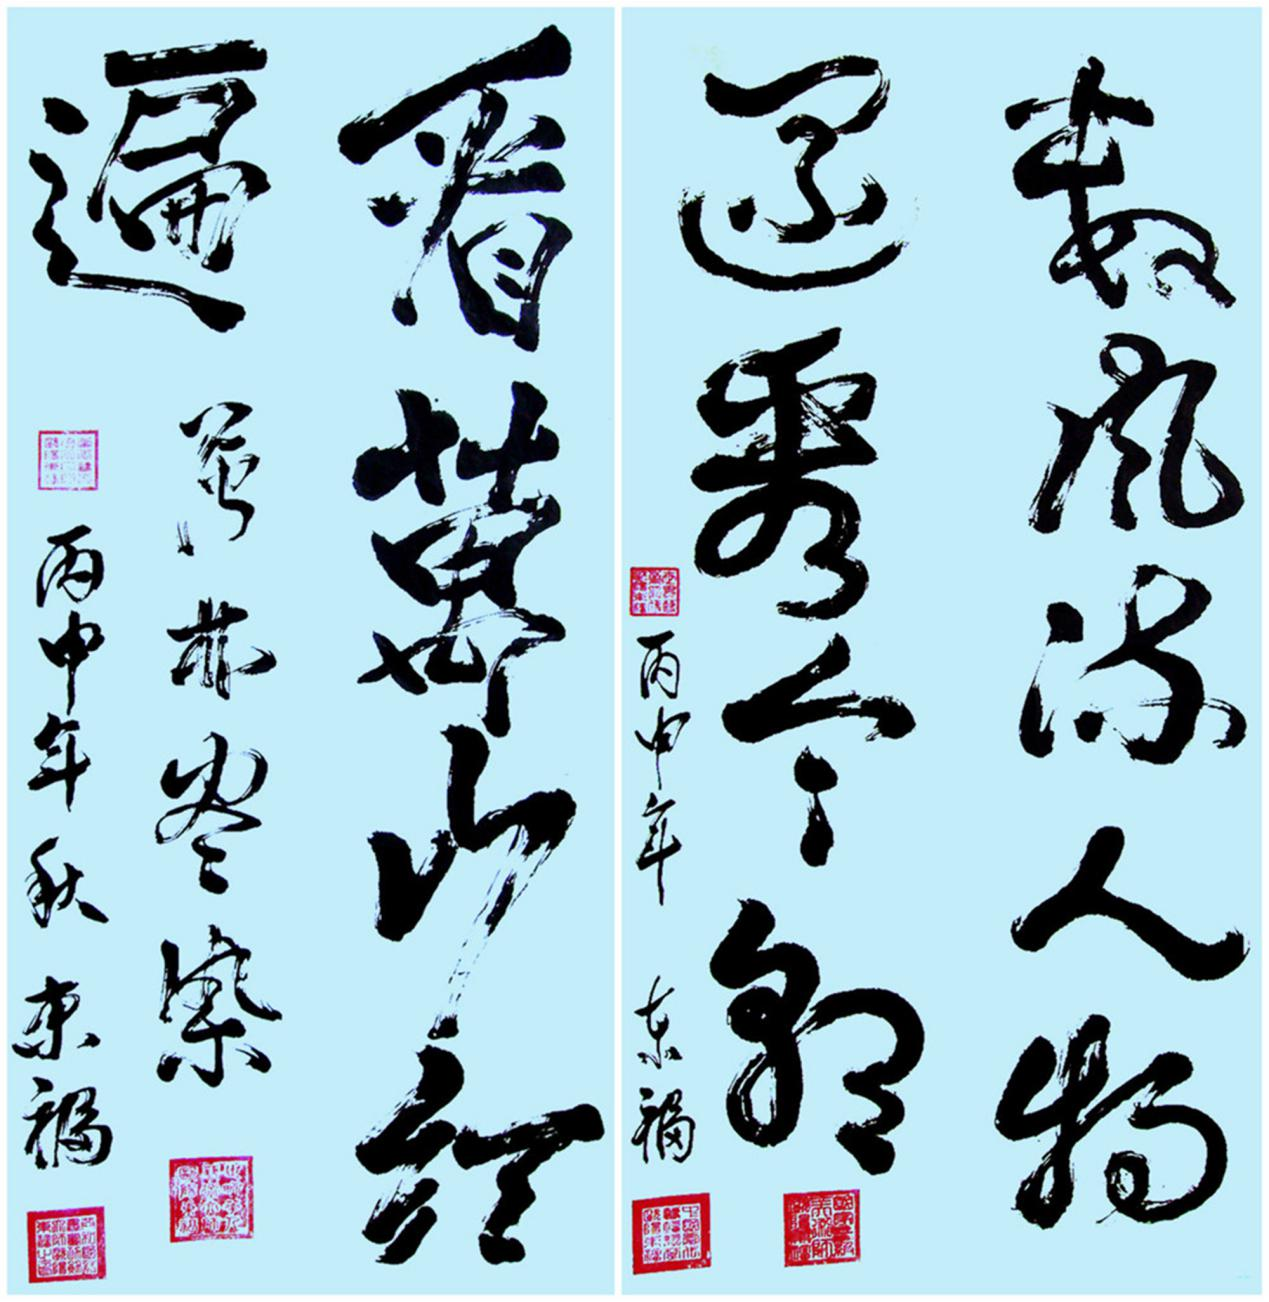 数风流人物
还看今朝
丙申年 东福
看萬山红
遍
层林尽染
丙申年秋 东福